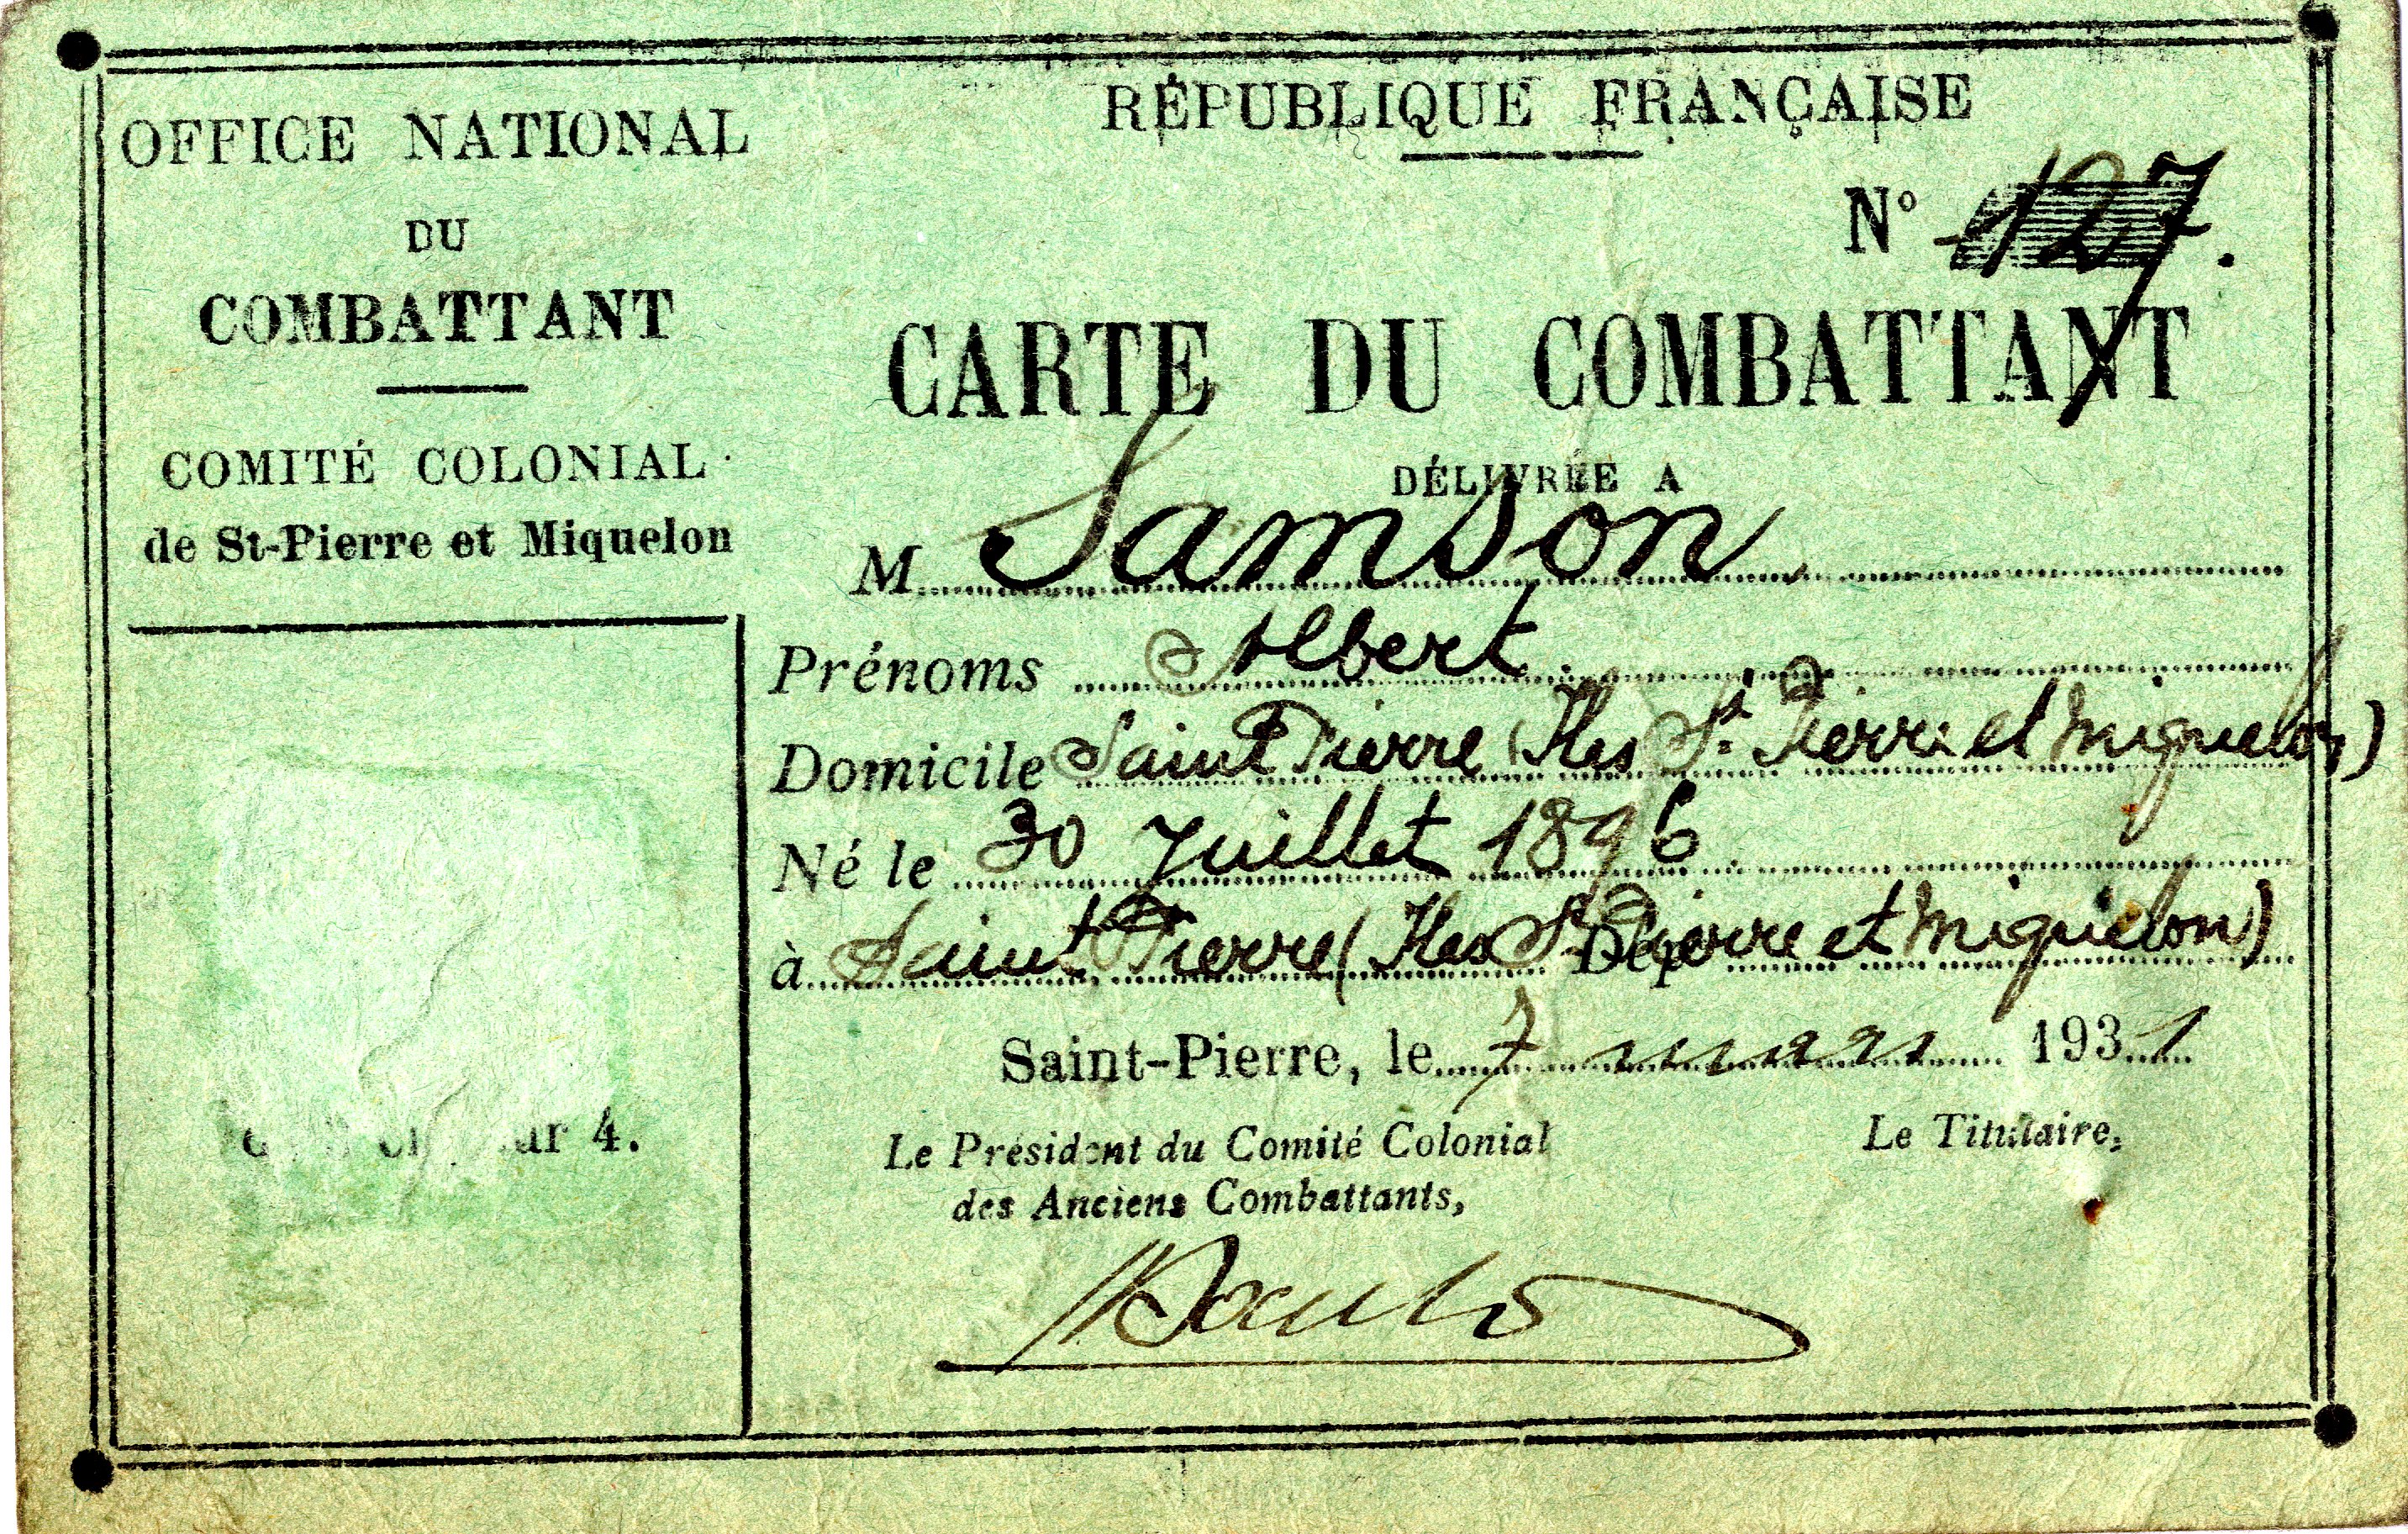 OFFICE NATIONAL
DU
COMBATTANT
COMITÉ COLONIAL
de St-Pierre et Miquelon
ur 4.
RÉPUBLIQUE FRANÇAISE
N° 127.
CARTE DU COMBATTANT
DÉLIVRÉE A
M Samson
Prénoms Albert
Domicile Saint Pierre (Iles St. Pierre et Miquelon)
Né le 30 Juillet 1896
à Saint Pierre (Iles St Pierre et Miquelon) Dép
Saint-Pierre, le 7 mars 1931
Le Président du Comité Colonial
des Anciens Combattants,
Le Titulaire,